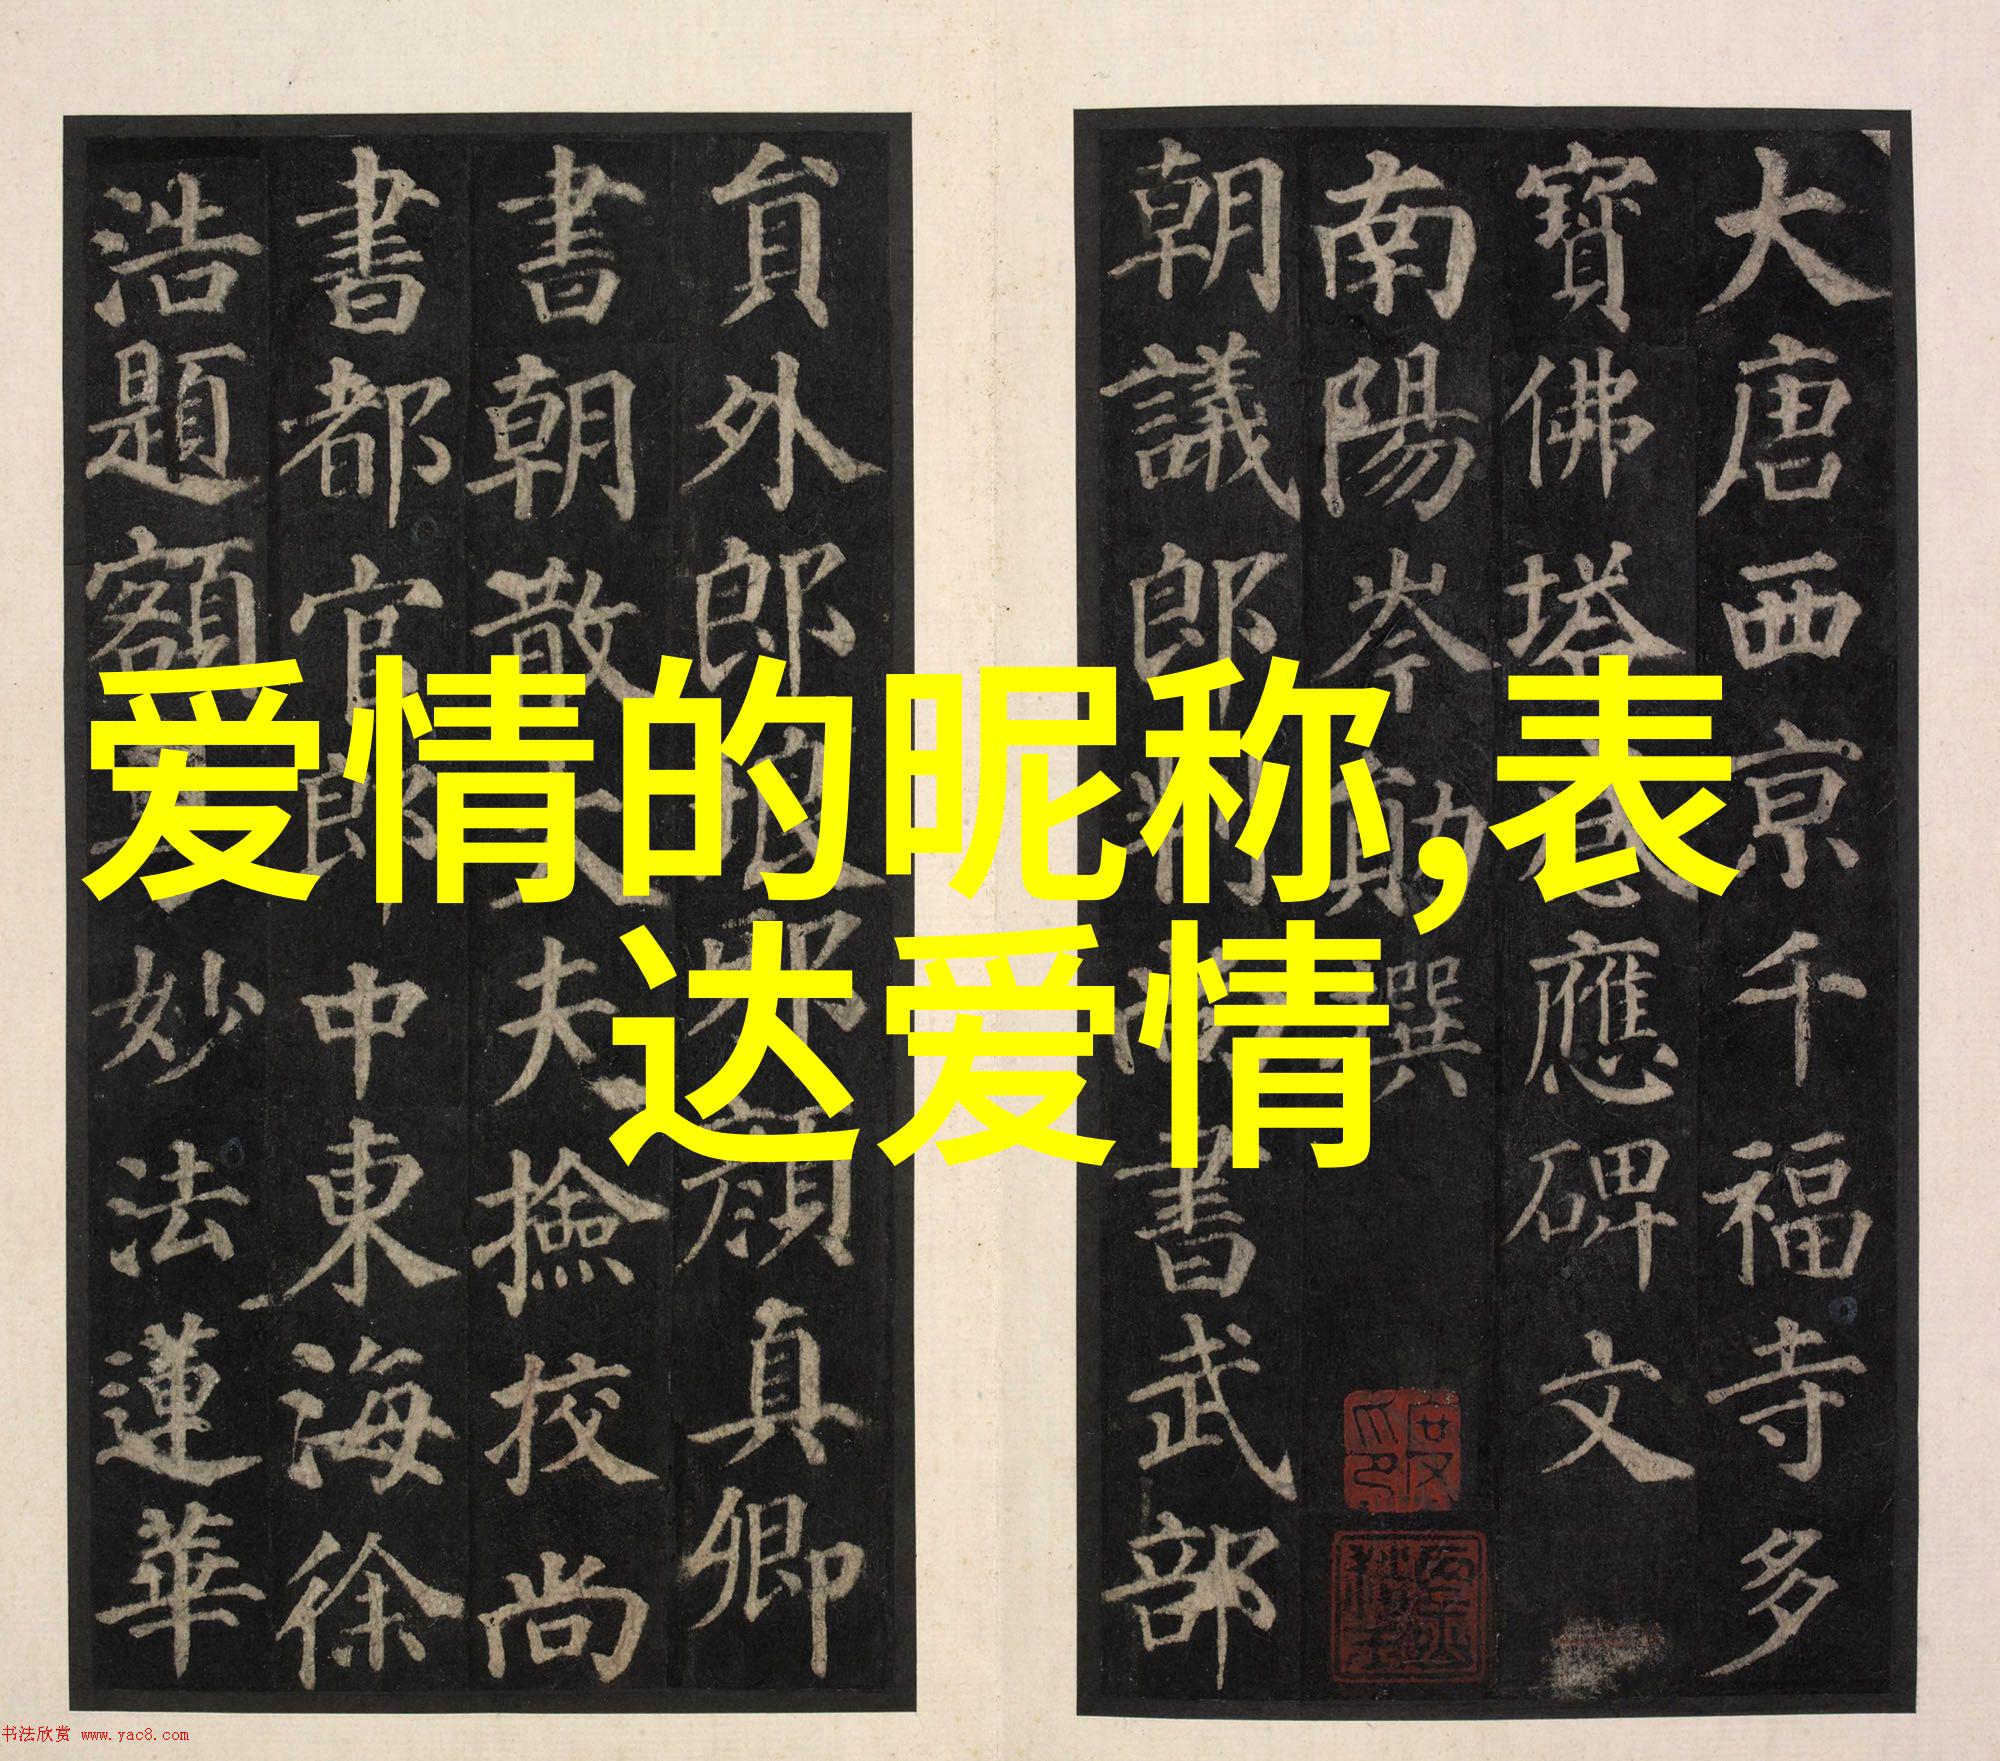 爱情的昵称,表
达爱情
大唐西京千福寺多
寶佛塔感應碑文
南陽岑勛撰
朝議郎判尚書武部
貟外郎琅邪顏真卿
書朝散大夫撿校尚
書都官郎中東海徐
浩題額妙法蓮華
书法欣赏 www.yac8.com